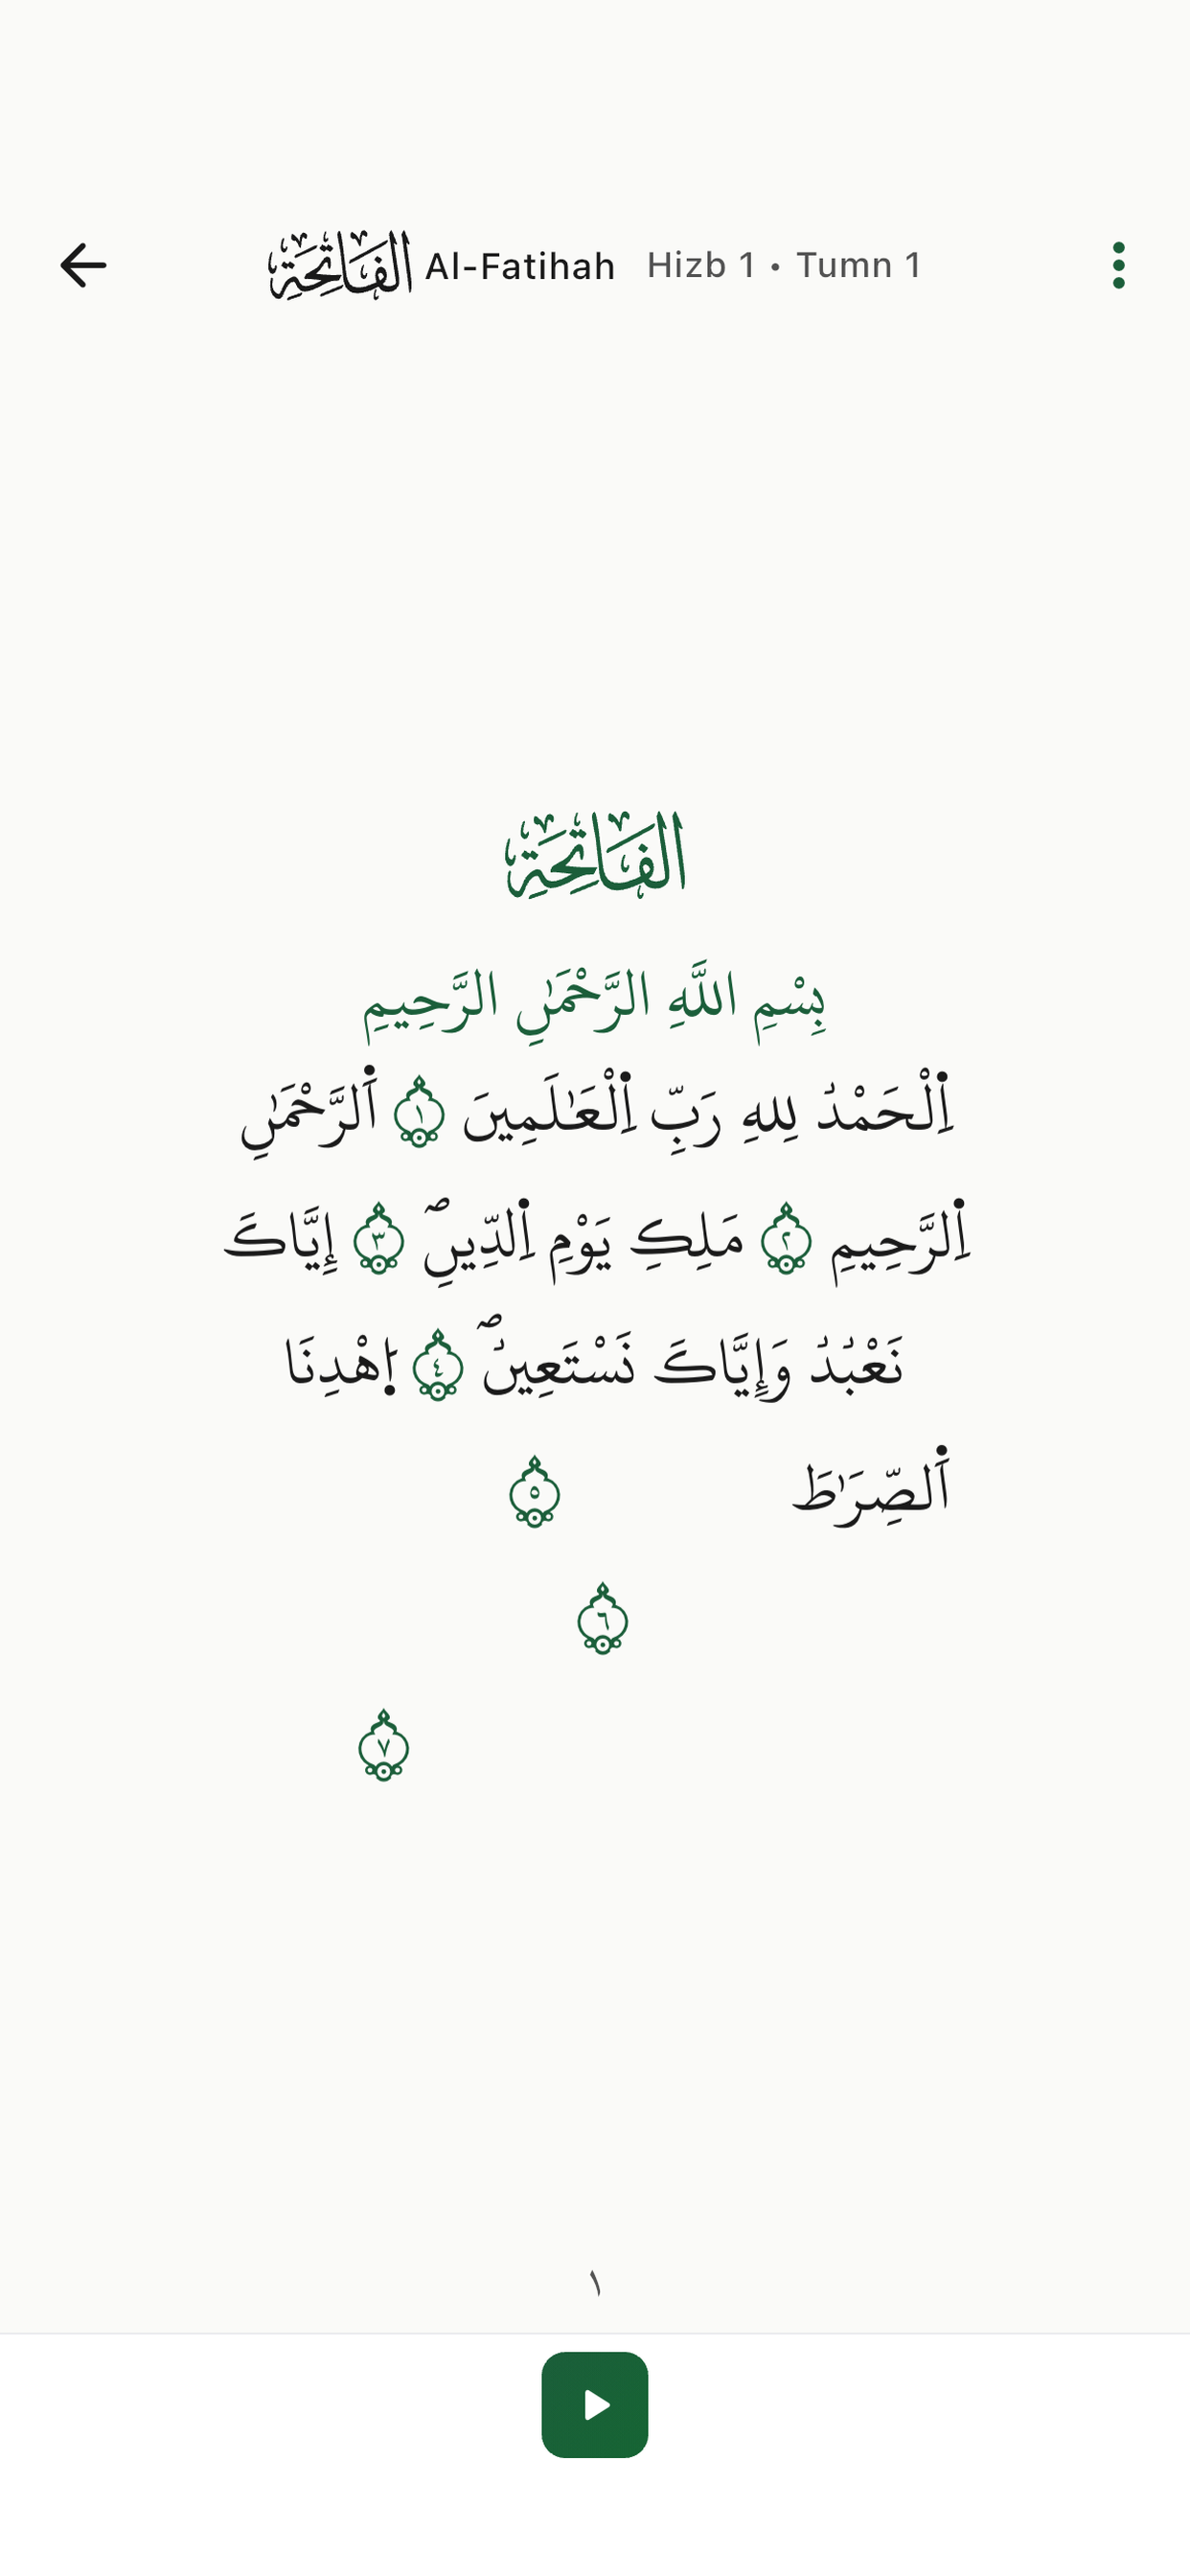 الفَاتِحَةِ Al-Fatihah Hizb 1 • Tumn 1
الفَاتِحَةِ
بِسْمِ اللَّهِ الرَّحْمَٰنِ الرَّحِيمِ
اَ۬لْحَمْدُ لِلهِ رَبِّ اِ۬لْعَٰلَمِينَ ١ اَ۬لرَّحْمَٰنِ
اِ۬لرَّحِيمِ ٢ مَلِكِ يَوْمِ اِ۬لدِّينِۖ ٣ إِيَّاكَ
نَعْبُدُ وَإِيَّاكَ نَسْتَعِينُۖ ٤ اَ۪هْدِنَا
اَ۬لصِّرَٰطَ ٥
٦
٧
١